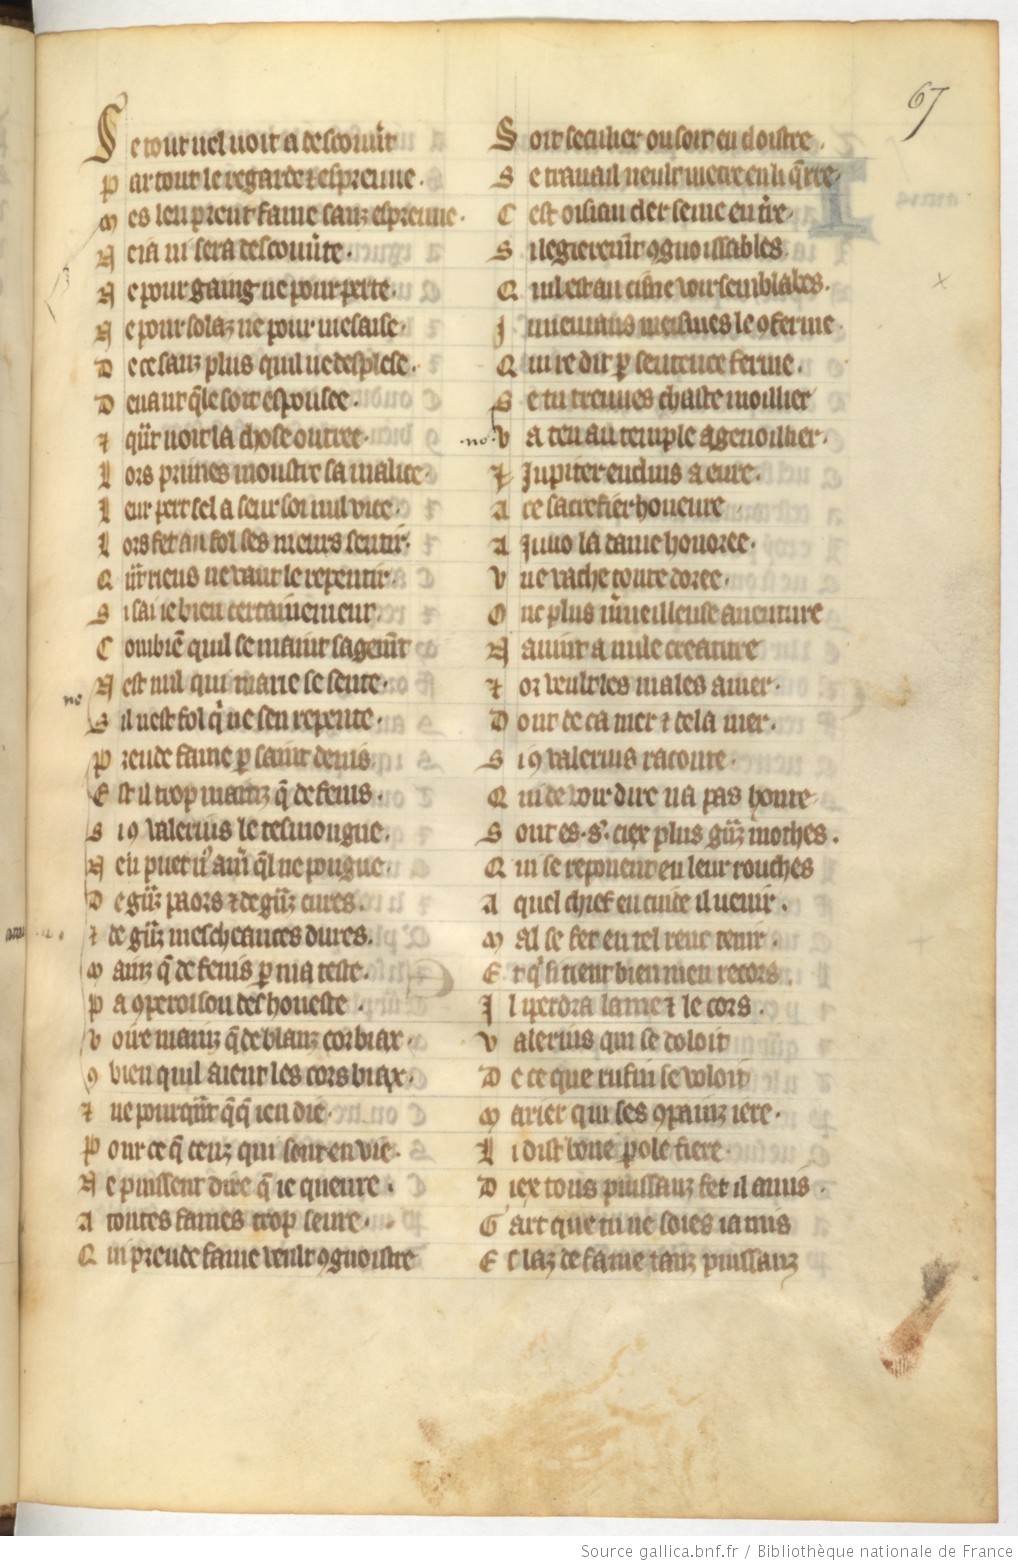 67
Se tout nel voit a descouv't
Par tout le regarde ⁊ espreuue.
Mes len prent fame sanz espreuue.
Na ia ni sera descouu'te.
Ne pour gaing ne pour perte.
Ne pour solaz ne pour mesaise.
De ce sanz plus quil ne desplese.
Deuant q̃le soit espousee.
⁊ qn̄t uoit la chose outree.
Lors primes moustre sa malice.
Leur pert sel a seur soi nul vice.
Lors fet au fol ses meurs sentir.
Qn̄t riens ne vaut le repentir.
Si sai ie bien certainement.
Combiē quil se maint sagem̄t
Nest nul qui marie se sente.
Sil nest fol q' ne sen repente.
Preude fame p̱ saint denis
Est il trop mainz q̄ de fenis.
Si 9 valerius le tesmongne.
Nen puet nˡ am̄ q̄l ne pongne.
De gn̄z paors ⁊ de gn̄z cures.
⁊ de gn̄z mescheances dures.
Mainz q̄ de fenis p̱ ma teste.
Pa 9peroison des honeste.
Voire mainz q̄ de blans corbiax.
9bien quil aient les cors biax.
⁊ ne pourqn̄t q̄ q̄ ien die.
Pour ce q̄ ceuz qui sont en vie.
Ne puissent dire q̄ ie queure.
A toutes fames trop seure.
Qui preude fame veult 9gnoistre
Soit seculier ou soit en cloistre.
Se trauail ueult metre en li q̄rre
Cest oisiau cler seme en t're
Si legierem̄t 9gnoissables
Quil est au cisne noir semblables.
Iuuenaus meismes le 9ferme
Qui re dit p̱ sentence ferme.
Se tu treuues chaste moillier
no. Va ten au temple agenoillier.
⁊ Jupiter enclins aeure.
A ce sacrefier honeure
A Juno la dame honoree.
Vne vache toute doree.
Onc plus m̄ueilleuse auenture
Nauint a nule creature
⁊ or veult les males amer.
Dont de ca mer ⁊ de la mer.
Si 9 valerius raconte.
Qui de voir dire na pas honte
Sont es.s'. ciex plus gn̄z moches.
Qui se reponent en leur rouches
A quel chief en cuide il uenir.
Mal se fet en tel rent tenir.
Et q' si tient bien men recors.
Il i perdra lame ⁊ le cors.
Valerius qui se doloit
De ce que rufin se voloit
Marier qui ses 9painz iere.
Li dist vne p̱ole fiere.
Diex tous puissanz fet il amis.
Gart que tu ne soies ia mis
Es laz de fame tanz puissanz
Source gallica.bnf.fr / Bibliothèque nationale de France